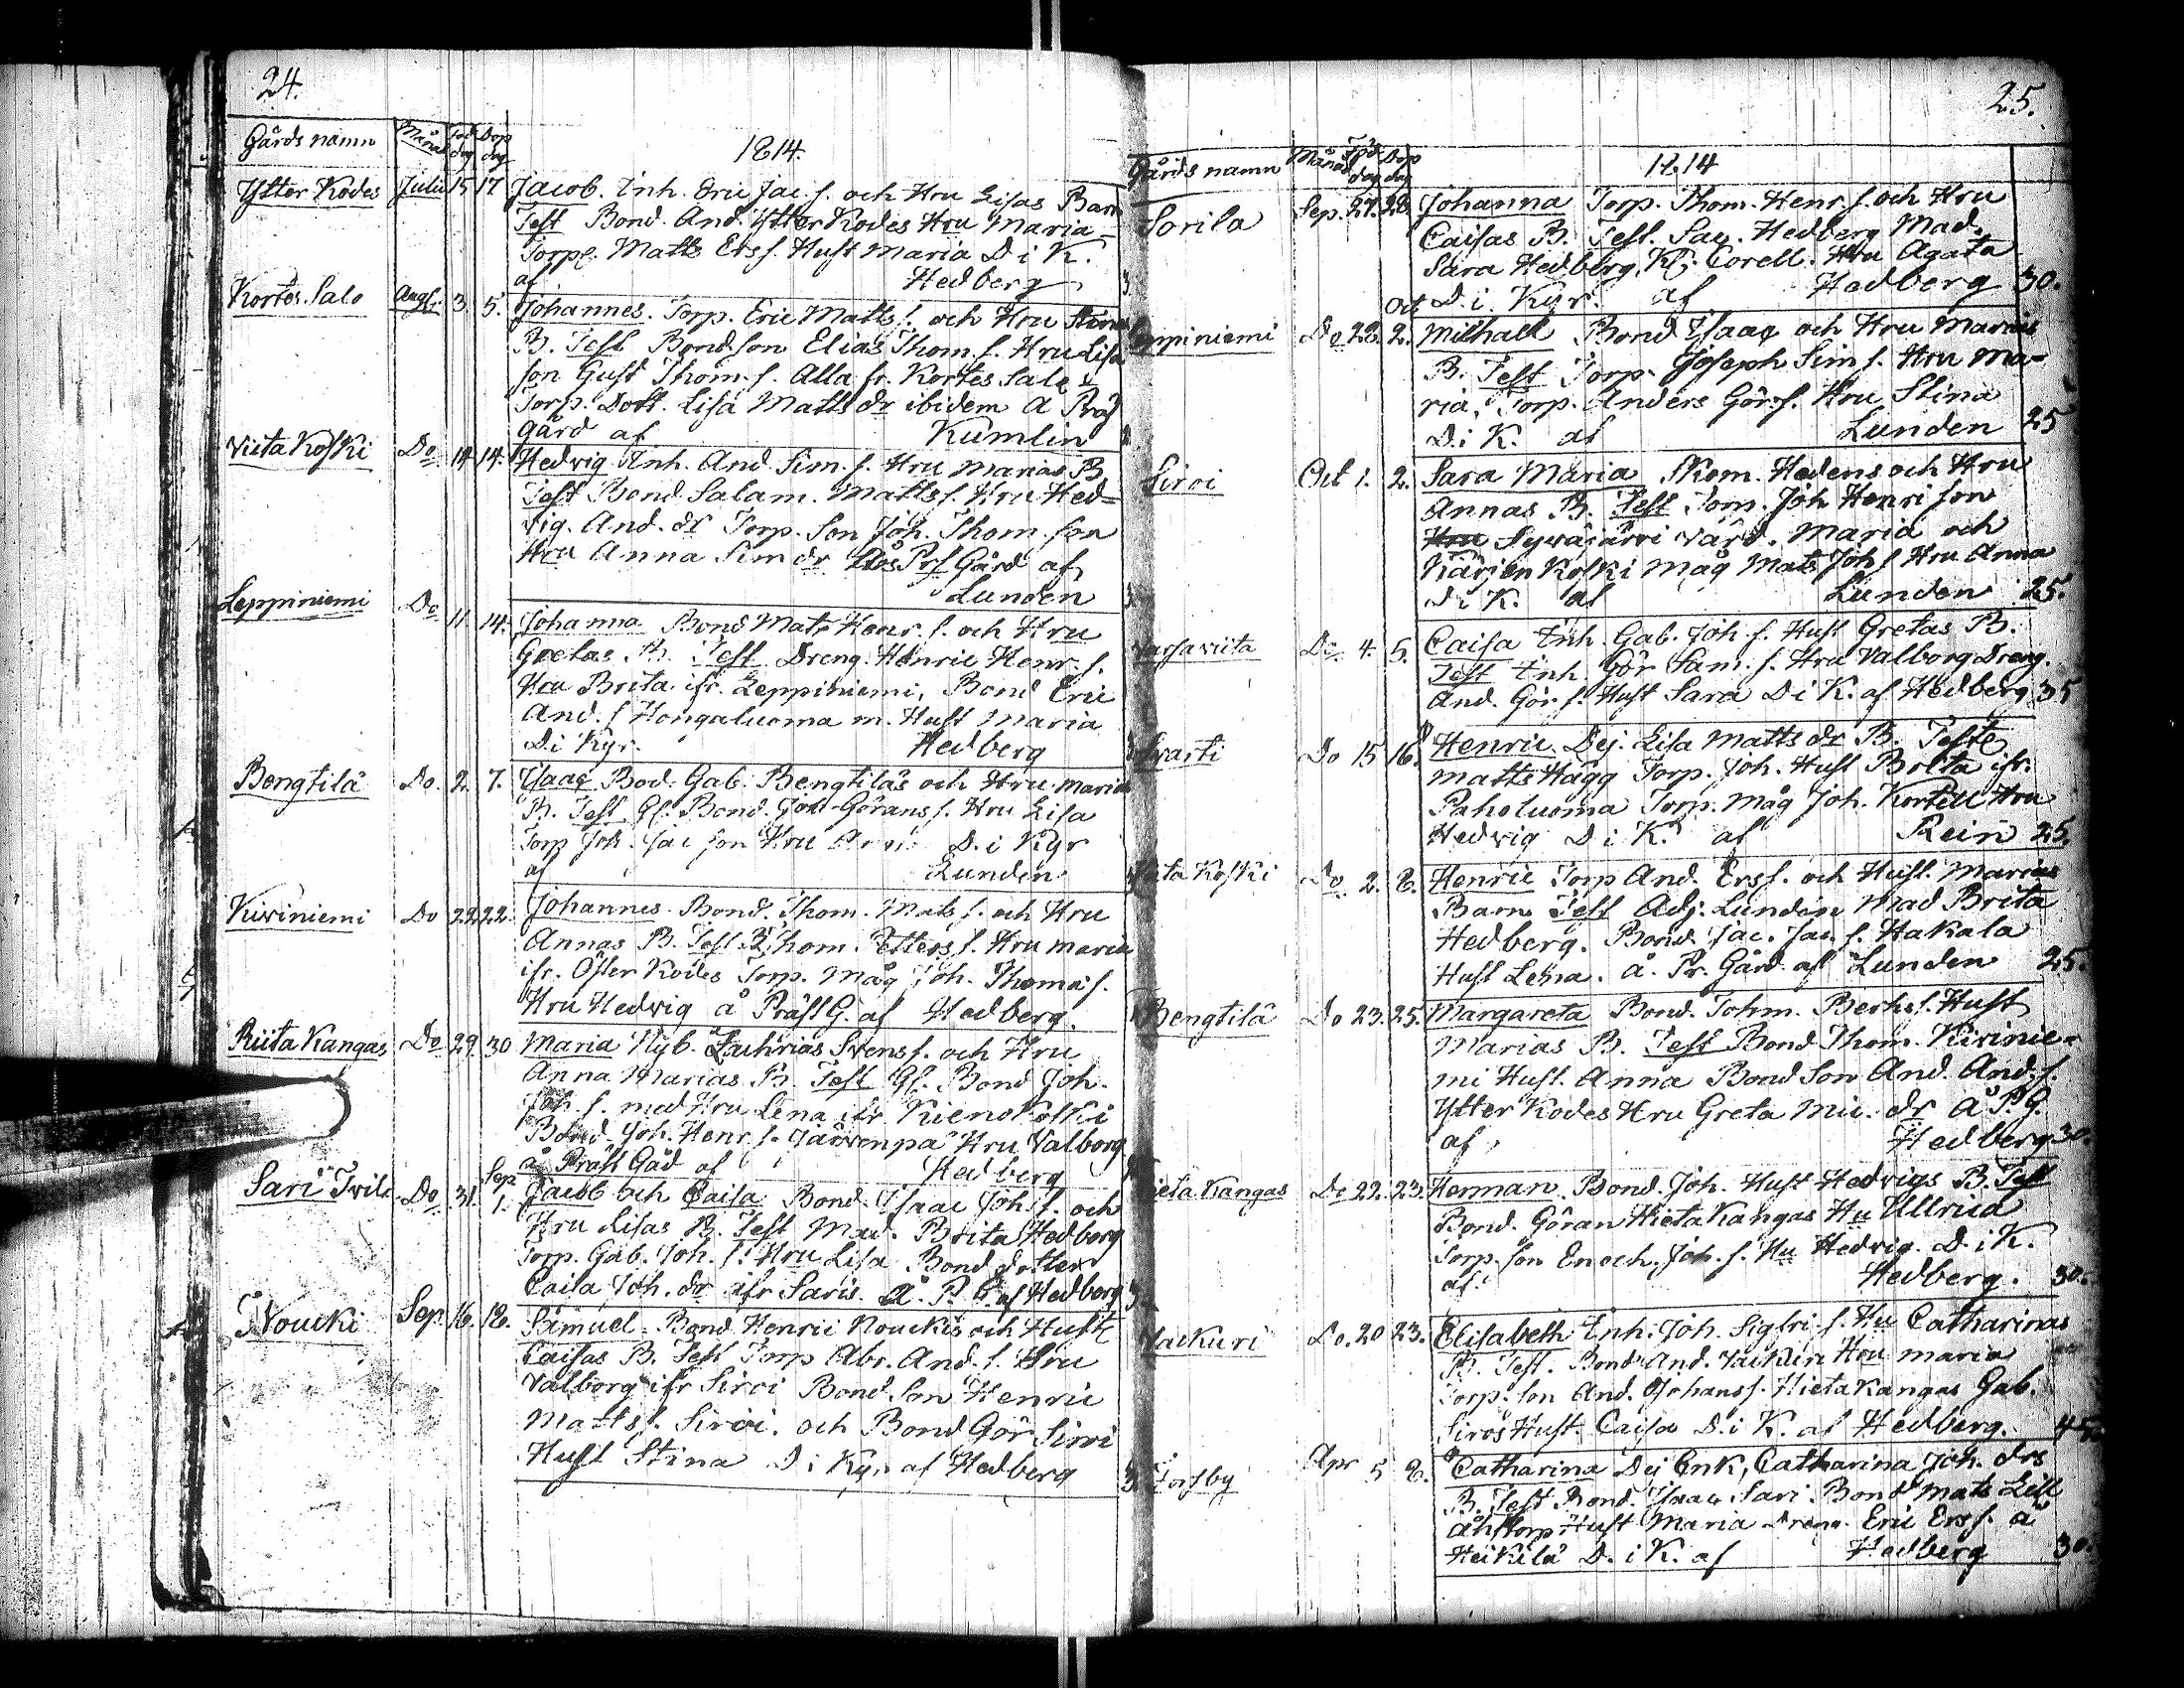 24.
Gårds namn Månad Föd dag Dop dag 1814.
Ytter Kodes Julii 15 17 Jacob. Inh. Eric Jac. s. och Hru Lisas Barn
Test Bond. And. Ytter Kodes Hru Maria
Torp. Matts Ers s. Hust Maria D i K.
af Hedberg
Kortes Salo Augst. 3. 5. Johannes. Torp. Eric Matts s. och Hru Stinas
B. Test Bond. son Elias Thom. s. Hru Lisa
son Gust Thom. s. Alla fr. Kortes Salo
Torp. Dott. Lisa Matts dr ibidem å Präst
gård af Kumlin
Viita Koski Do 14 14. Hedvig Inh. And. Sim. s. Hru Marias B
Test Bond Salam. Matts s. Hru Hed-
vig. And. dr Torp. Son Joh. Thom. son
Hru Anna Sim dr Prs Gård af
Lunden
Leppiniemi Do 11 14. Johanna Bond Mats Henr. s. och Hru
Gretas B. Test Dreng. Henric Henr. s.
Hru Brita ifr. Leppiniemi, Bond Eric
And. s Hongaluoma m. Hust Maria
D i Kyr. Hedberg
Bengtilä Do. 2. 7. Isaac Bod. Gab. Bengtiläs och Hru Maria
B. Test Gl. Bond. Görans s. Hru Lisa
Torp Joh. Jac son Hru D. i Kyr
af Lunden
Kiviniemi Do 22. 22. Johannes. Bond. Thom. Mats s. och Hru
Annas B. Test Thom. Petters s. Hru Maria
ifr. Öfter Kodes Torp. Måg Joh. Thoma s.
Hru Hedvig å Präst G. af Hedberg.
Riita Kangas Do 29. 30 Maria Nyb. Zachrias Svens s. och Hru
Anna Marias B. Test Gl. Bond Joh.
Joh. s. med Hru Lena ifr Kienokoski
Bond Joh. Henr. s. Järvenpä Hru Valborg
å Präst Gåd af Hedberg
Sari Do 31. Sep 1. Jacob och Caisa Bond. Isaac Joh. s. och
Hru Lisas B. Test Mad. Brita Hedberg
Torp. Gab. Joh. s. Hru Lisa Bond dotter
Caisa Joh. dr ifr Saris å. P. G. af Hedberg
Noucki Sep. 16. 18. Samuel. Bond Henric Nouckis och Hust
Caisas B. Test Torp Abr. And. s. Hru
Valborg ifr Siroi Bond. son Henric
Matts s. Siroi. och Bond Gör Siroi
Hust Stina D i Kyr af Hedberg
25.
Gårds namn Månad Föd dag Dop dag 1814
Sorila Sep. 27. 28 Johanna Torp. Thom. Henr. s. och Hru
Caisas B. Test. Sac. Hedberg Mad.
Sara Hedberg, Kl. Corell. Hru Agata
D. i Kyr. af Hedberg 30.
Leppiniemi Do 28. Oct 2. Michael Bond Isaac och Hru Marias
B. Test Torp. Joseph Sim s. Hru Ma-
ria, Torp. Anders Görs s. Hru Stina
D. i K. af Lunden 25
Siroi Oct 1. 2. Sara Maria Skom. Hedens och Hru
Annas B. Test Torp. Joh Henric son
Hru Syväjärvi värd. Maria och
Kärjenkoski Måg Mats Joh s Hru Anna
D i K. af Lunden 25.
Do. 4. 5. Caisa Inh. Gab. Joh. s. Hust Gretas B.
Test Inh. Gör Sam. s. Hru Valborg Dreng.
And. Gör. s. Hust Sara D i K. af Hedberg 35
Svarti Do 15 16. Henric. Dej. Lisa Matts dr B. Test
Matts Hägg Torp. Joh. Hust Brita ifr.
Paholuoma Torp. Måg Joh. Kortell Hru
Hedvig D i K. af Rein 25.
Viita Koski Do. 2. 8. Henric Torp And. Ers s. och Hust. Marias
Barn Test Adj. Lunden Mad Brita
Hedberg. Bond Jac. Jac. s. Hakala
Hust Lena. å. Pr. Gård af Lunden 25.
Bengtilä Do 23. 25. Margareta Bond. Johm. Berhs s. Hust
Marias B. Test Bond Thom. Kivinie-
mi Hust. Anna Bond Son And. And. s.
Ytter Kodes Hru Greta Mic. dr å P. G.
af Hedberg 30.
Hieta Kangas Do 22. 23. Herman. Bond. Joh. Hust Hedvigs B. Test
Bond. Göran Hieta Kangas Hu Ullrica
Torp. son Enoch. Joh. s. Hu Hedvig. D. i K.
af. Hedberg. 30.
Vackuri Do. 20 23. Elisabeth Inh. Joh. Sigfri. s. Hu Catharinas
B. Test. Bond And. Vackuri Hru Maria
Torp. son And. Johans s. Hietakangas Gab.
Siros Hust. Caisa D. i K. af Hedberg. 45
Apr 5 8. Catharina Dej Enk, Catharina Joh. drs
B. Test Bond. Isaac Sari. Bond Mats Lill
åhstorp Hust Maria Dreng. Eric Ers s. å
Heikilä D. i K. af Hedberg 30.